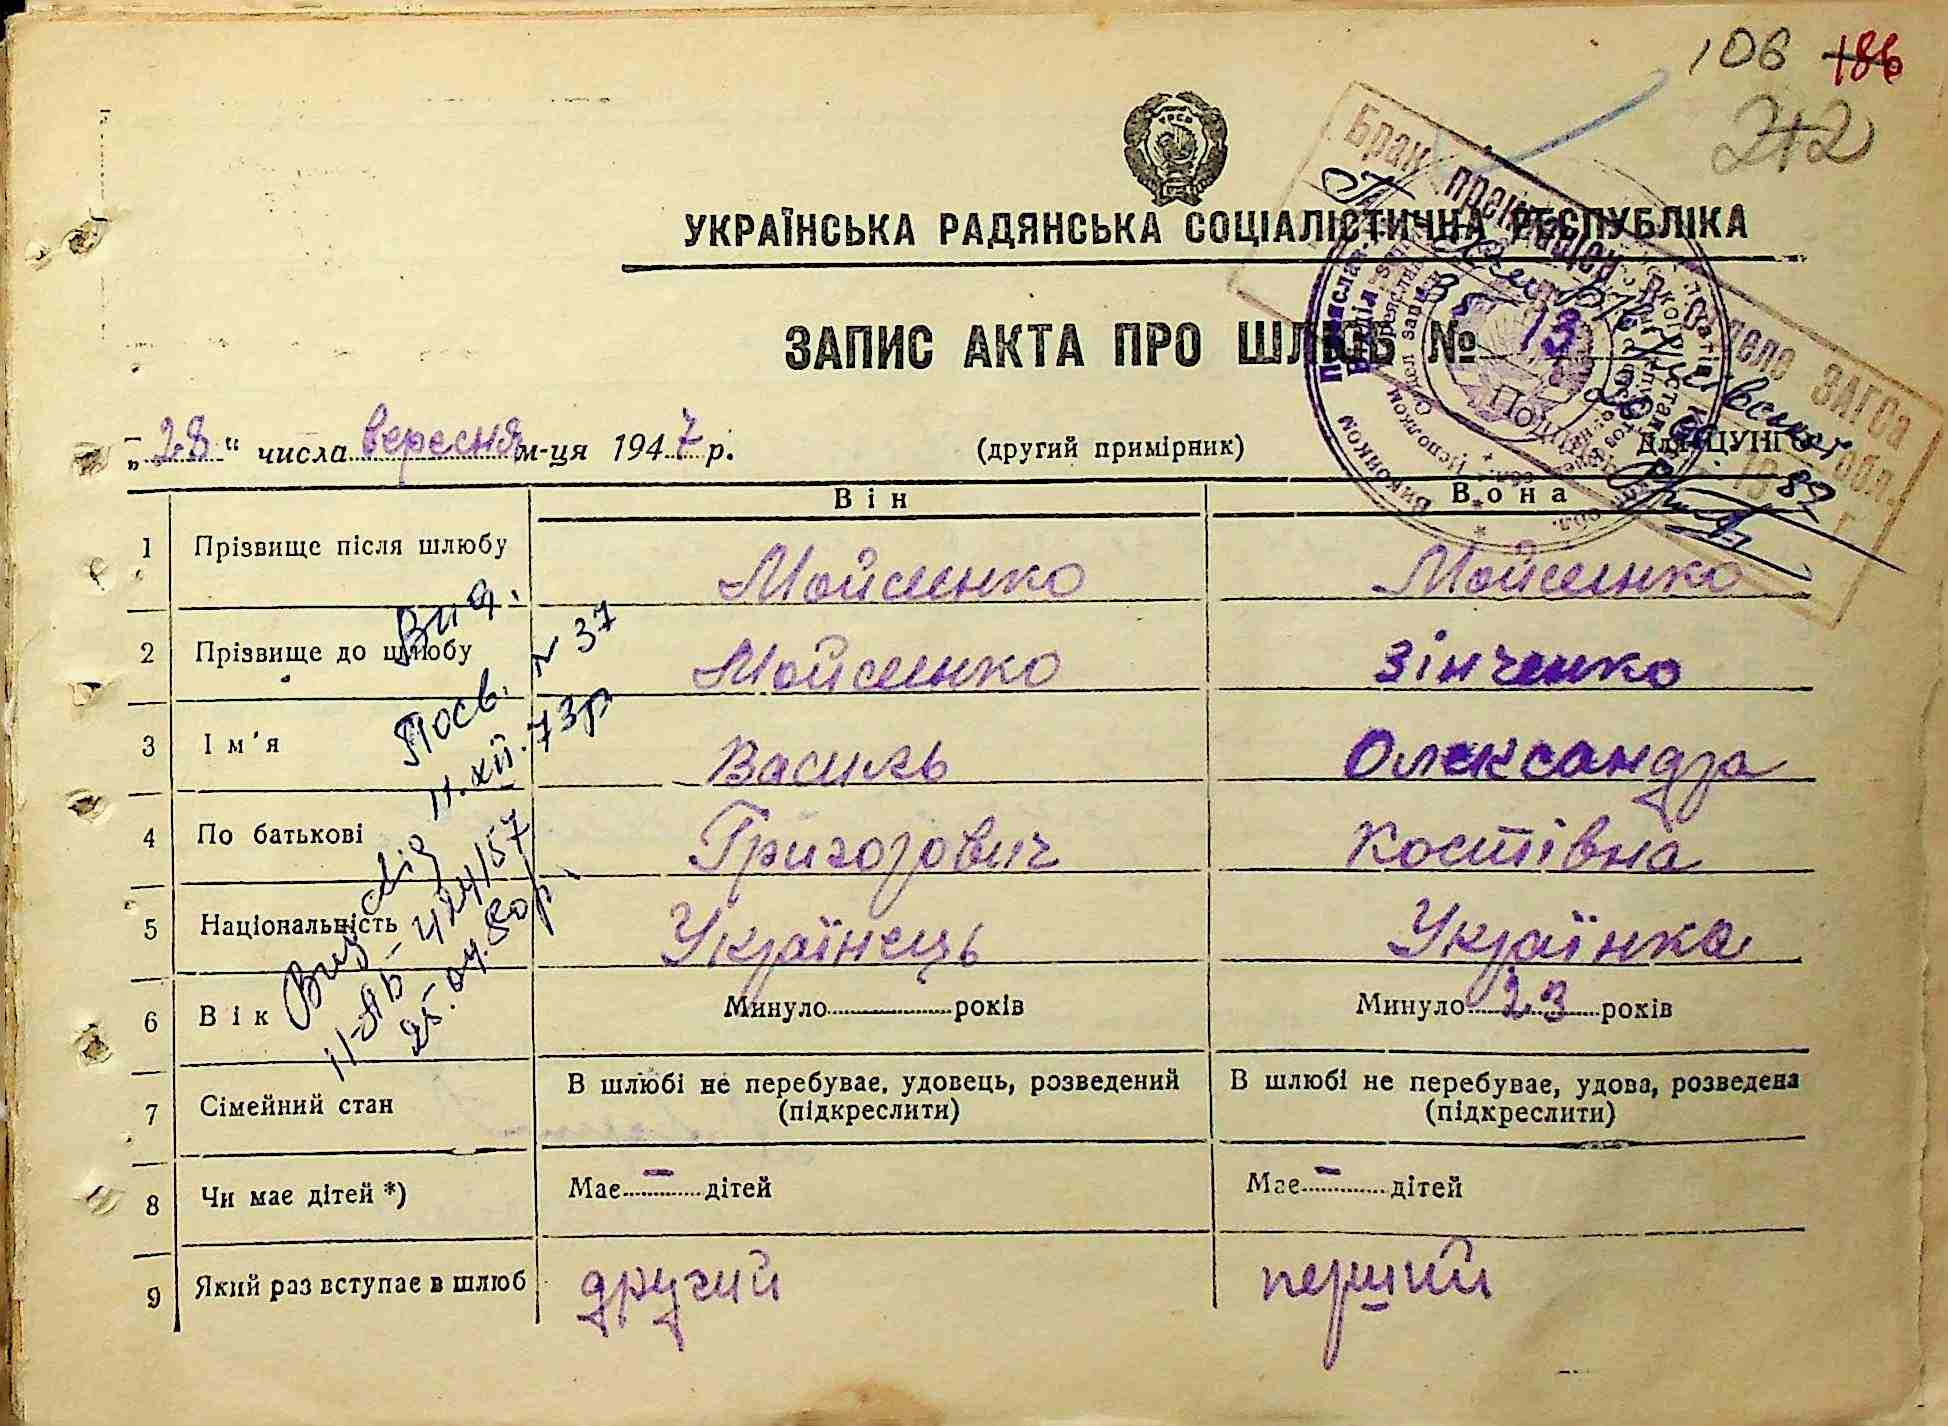 106 186
212
УКРАЇНСЬКА РАДЯНСЬКА СОЦІАЛІСТИЧНА РЕСПУБЛІКА
Брак прекращен в отделе ЗАГСа
обл.
ЗАПИС АКТА ПРО ШЛЮБ № 13
„28“ числа вересня м-ця 1947 р. (другий примірник) Для ЦУНГО
Він Вона
1 Прізвище після шлюбу Мойсенко Мойсенко
2 Прізвище до шлюбу Мойсенко Зінченко
3 Ім'я Василь Олександра
4 По батькові Григорович Костівна
5 Національність Українець Українка
6 Вік Минуло років Минуло 23 років
7 Сімейний стан В шлюбі не перебуває, удовець, розведений В шлюбі не перебуває, удова, розведена
(підкреслити) (підкреслити)
8 Чи має дітей *) Має – дітей Має – дітей
9 Який раз вступає в шлюб другий перший
Вид.
Посв. № 37
11.XII.73р
25.04.80р.